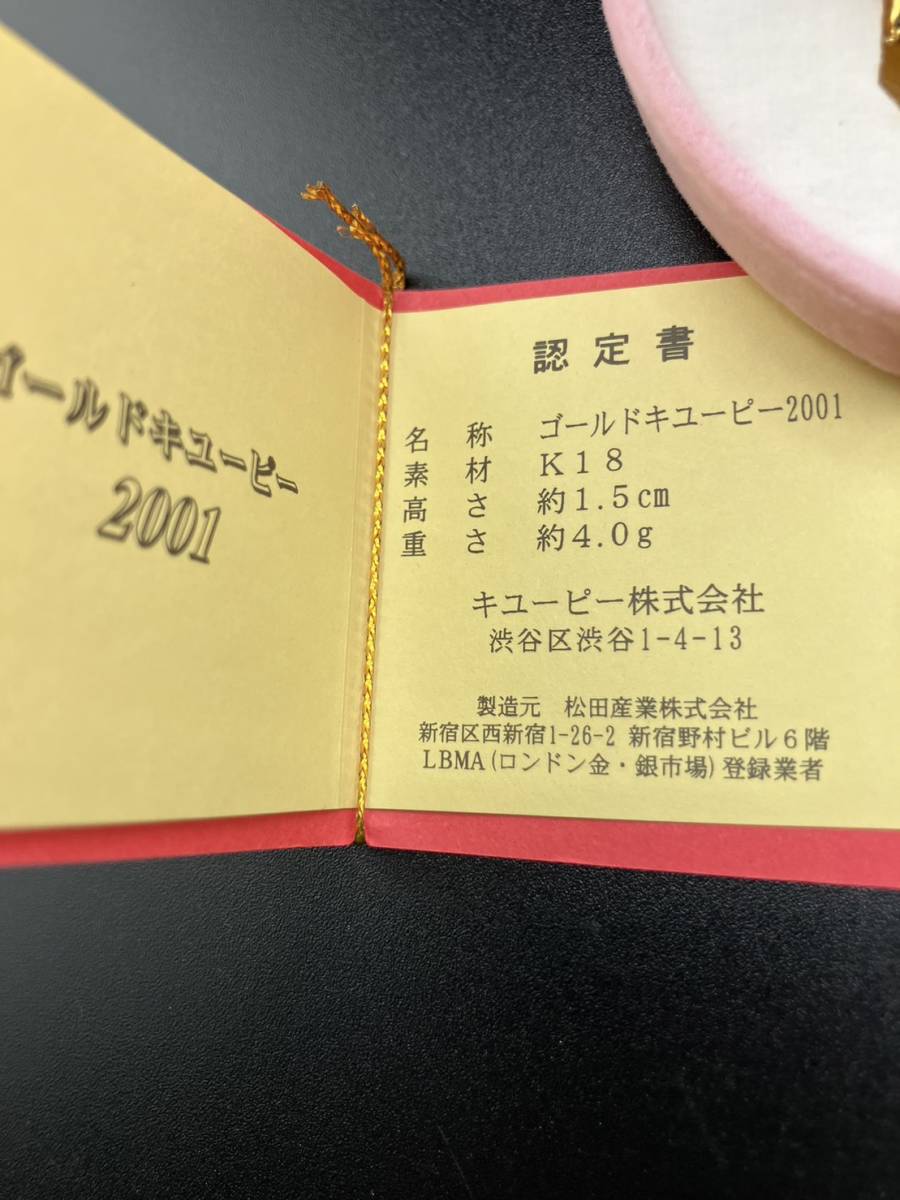 ゴールドキユーピー
2001
認定書
名称 ゴールドキユーピー2001
素材 K18
高さ 約1.5cm
重さ 約4.0g
キユーピー株式会社
渋谷区渋谷1-4-13
製造元 松田産業株式会社
新宿区西新宿1-26-2 新宿野村ビル6階
LBMA(ロンドン金・銀市場)登録業者